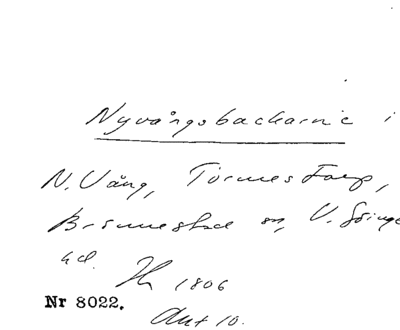 Nyvångsbackarne i
N. Vång, Tormestorp,
Brönnestad sn, V. Göinge
hd.
Th 1806
Nr 8022.
Akt 10.